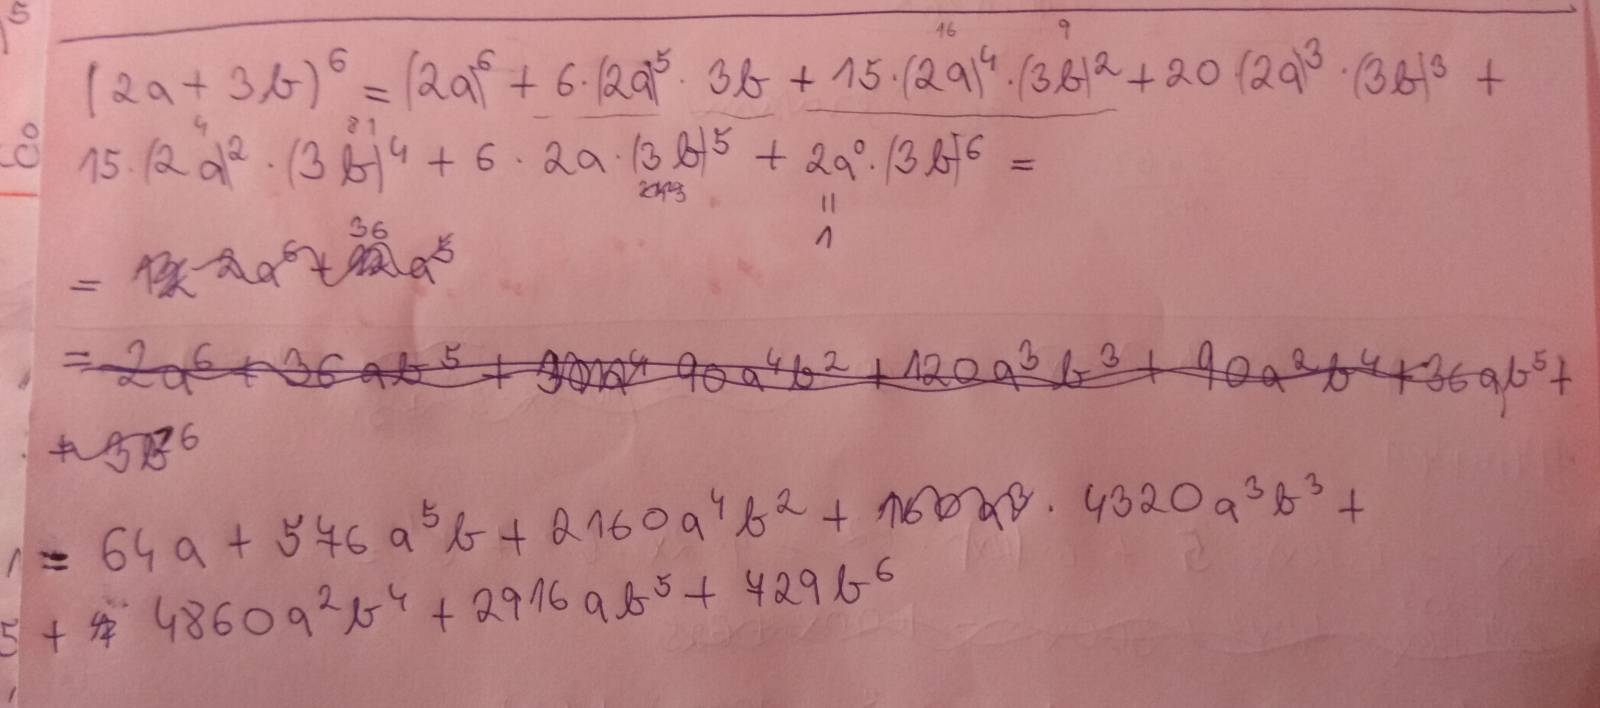 5
16 9
(2a + 3b)^6 = (2a)^6 + 6·(2a)^5 · 3b + 15·(2a)^4 · (3b)^2 + 20·(2a)^3 · (3b)^3 +
4 81
15·(2a)^2 · (3b)^4 + 6 · 2a · (3b)^5 + 2a^0 · (3b)^6 =
243 ||
1
36
= 2a^6 + a^5
= 2a^6 + 36ab^5 + 90a^4b^2 + 120a^3b^3 + 90a^2b^4 + 36ab^5 +
+ 3b^6
= 64a + 576a^5b + 2160a^4b^2 + · 4320a^3b^3 +
+ 4860a^2b^4 + 2916ab^5 + 729b^6